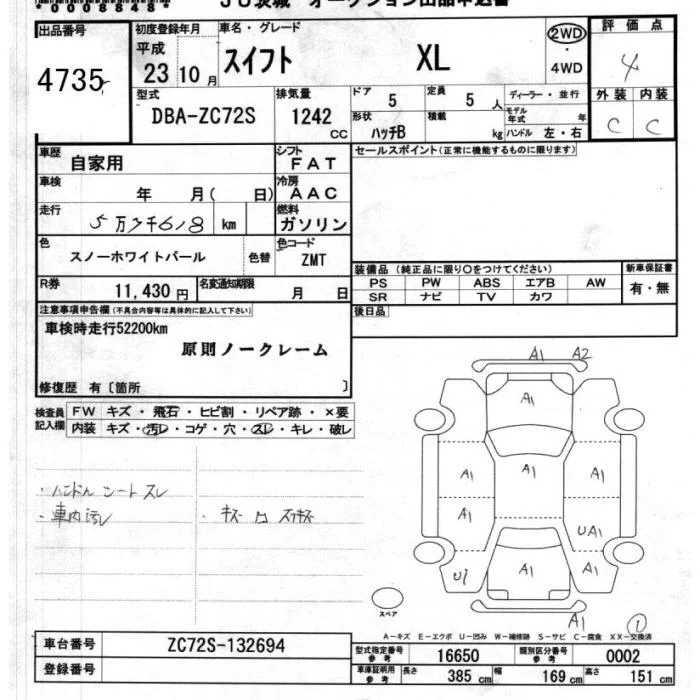 *0008848*
JU茨城 オークション出品申込書
出品番号 初度登録年月 車名・グレード 評価点
平成 23 10月 スイフト XL 2WD ・ 4WD 4
4735
型式 排気量 ドア 定員 ディーラー・並行 外装 内装
DBA-ZC72S 1242 CC 5 5 人 モデル年式 年 C C
形状 積載
ハッチB kg ハンドル 左・右
車歴 自家用 シフト FAT セールスポイント(正常に機能するものに限ります)
車検 年 月( 日) 冷房 AAC
走行 km 燃料 ガソリン
色 スノーホワイトパール 色替 色コード ZMT
R券 11,430円 名変通知期限 月 日
装備品 (純正品に限り○をつけてください) 新車保証書
PS PW ABS エアB AW 有・無
SR ナビ TV カワ
注意事項申告欄(不具合内容等は具体的に記入して下さい) 後日品
車検時走行52200km
原則ノークレーム
修復歴 有〔箇所 〕
検査員記入欄 FW キズ・飛石・ヒビ割・リペア跡・×要
内装 キズ・汚レ・コゲ・穴・スレ・キレ・破レ
・ハンドル シート スレ
・車内汚レ
A1 A2
A1
A1 A1 A1
A1 UA1
U1 A1 A1
A1 ①
スペア
A-キズ E-エクボ U-凹み W-補修跡 S-サビ C-腐食 XX-交換済
車台番号 ZC72S-132694
登録番号
型式指定番号 参考 16650 類別区分番号 参考 0002
車庫証明用 参考 長さ 385 cm 幅 169 cm 高さ 151 cm